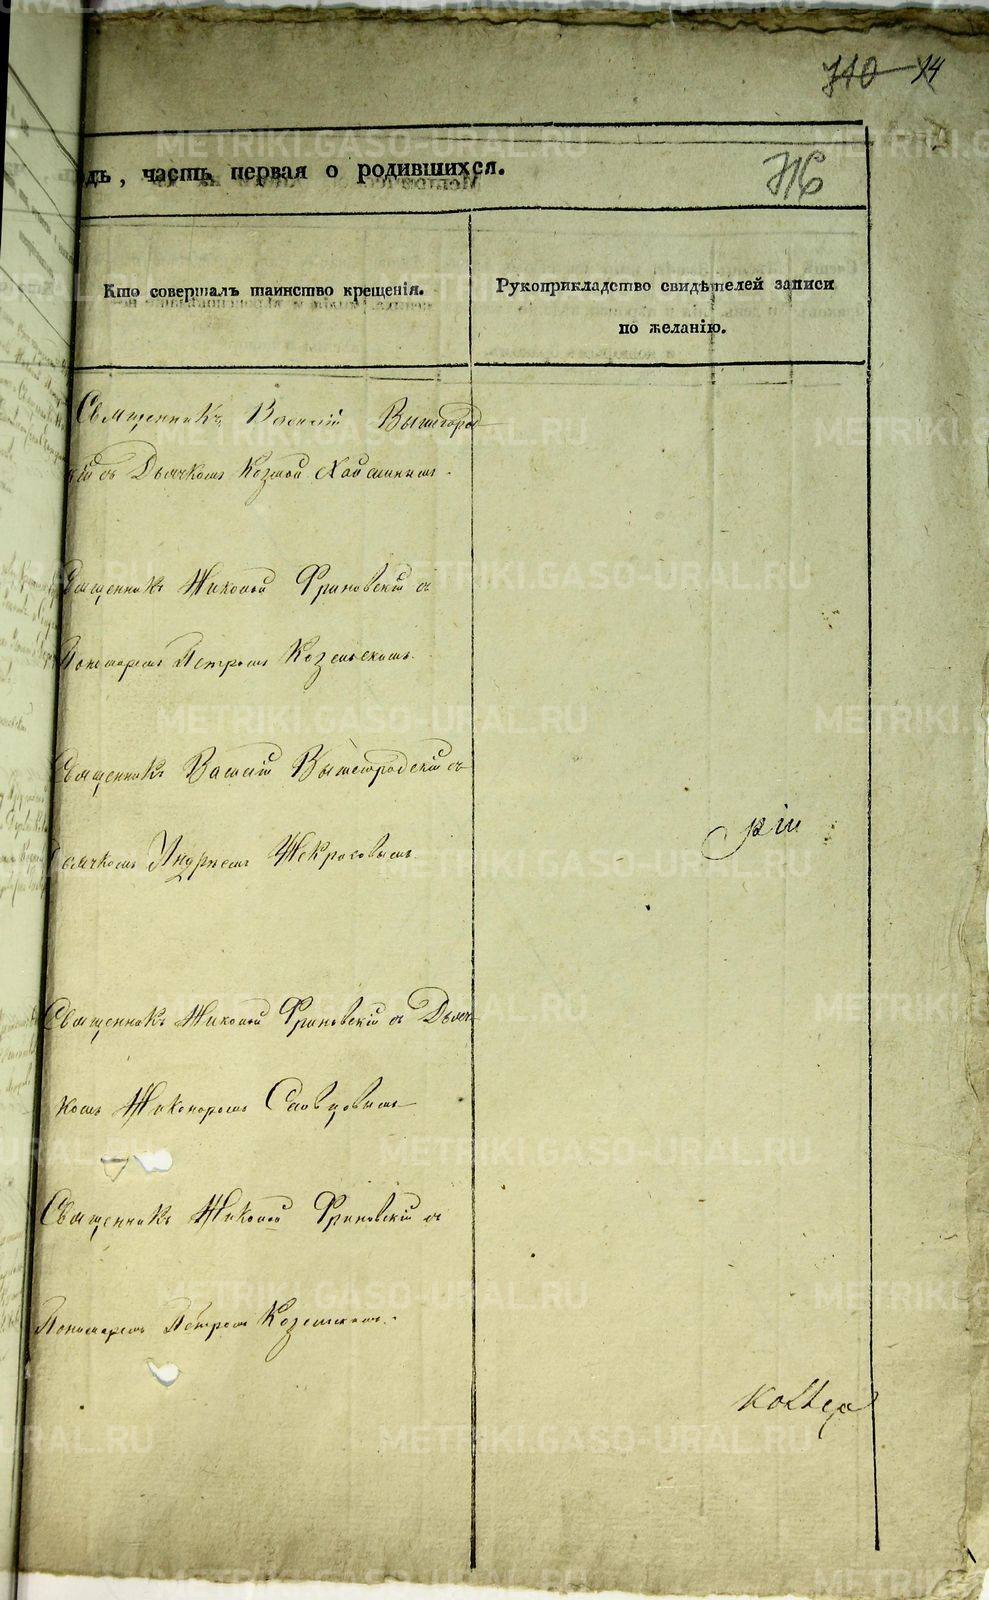 710 14
716
одъ, часть первая о родившихся.
Кто совершалъ таинство крещенія.
Рукоприкладство свидѣтелей записи
по желанію.
Священникъ Василій Вышегород
кій съ Дьячкомъ Козмой
Священникъ Николай Фриновскій съ
Пономаремъ Петромъ Козельскимъ.
Священникъ Василій Вышегородскій съ
Дьячкомъ Андреемъ Некрасовымъ
ріи
Священникъ Николай Фриновскій съ Дьяч
комъ Никоноромъ Словцовымъ
Священникъ Николай Фриновскій съ
Пономаремъ Петромъ Козельскимъ.
METRIKI.GASO-URAL.RU